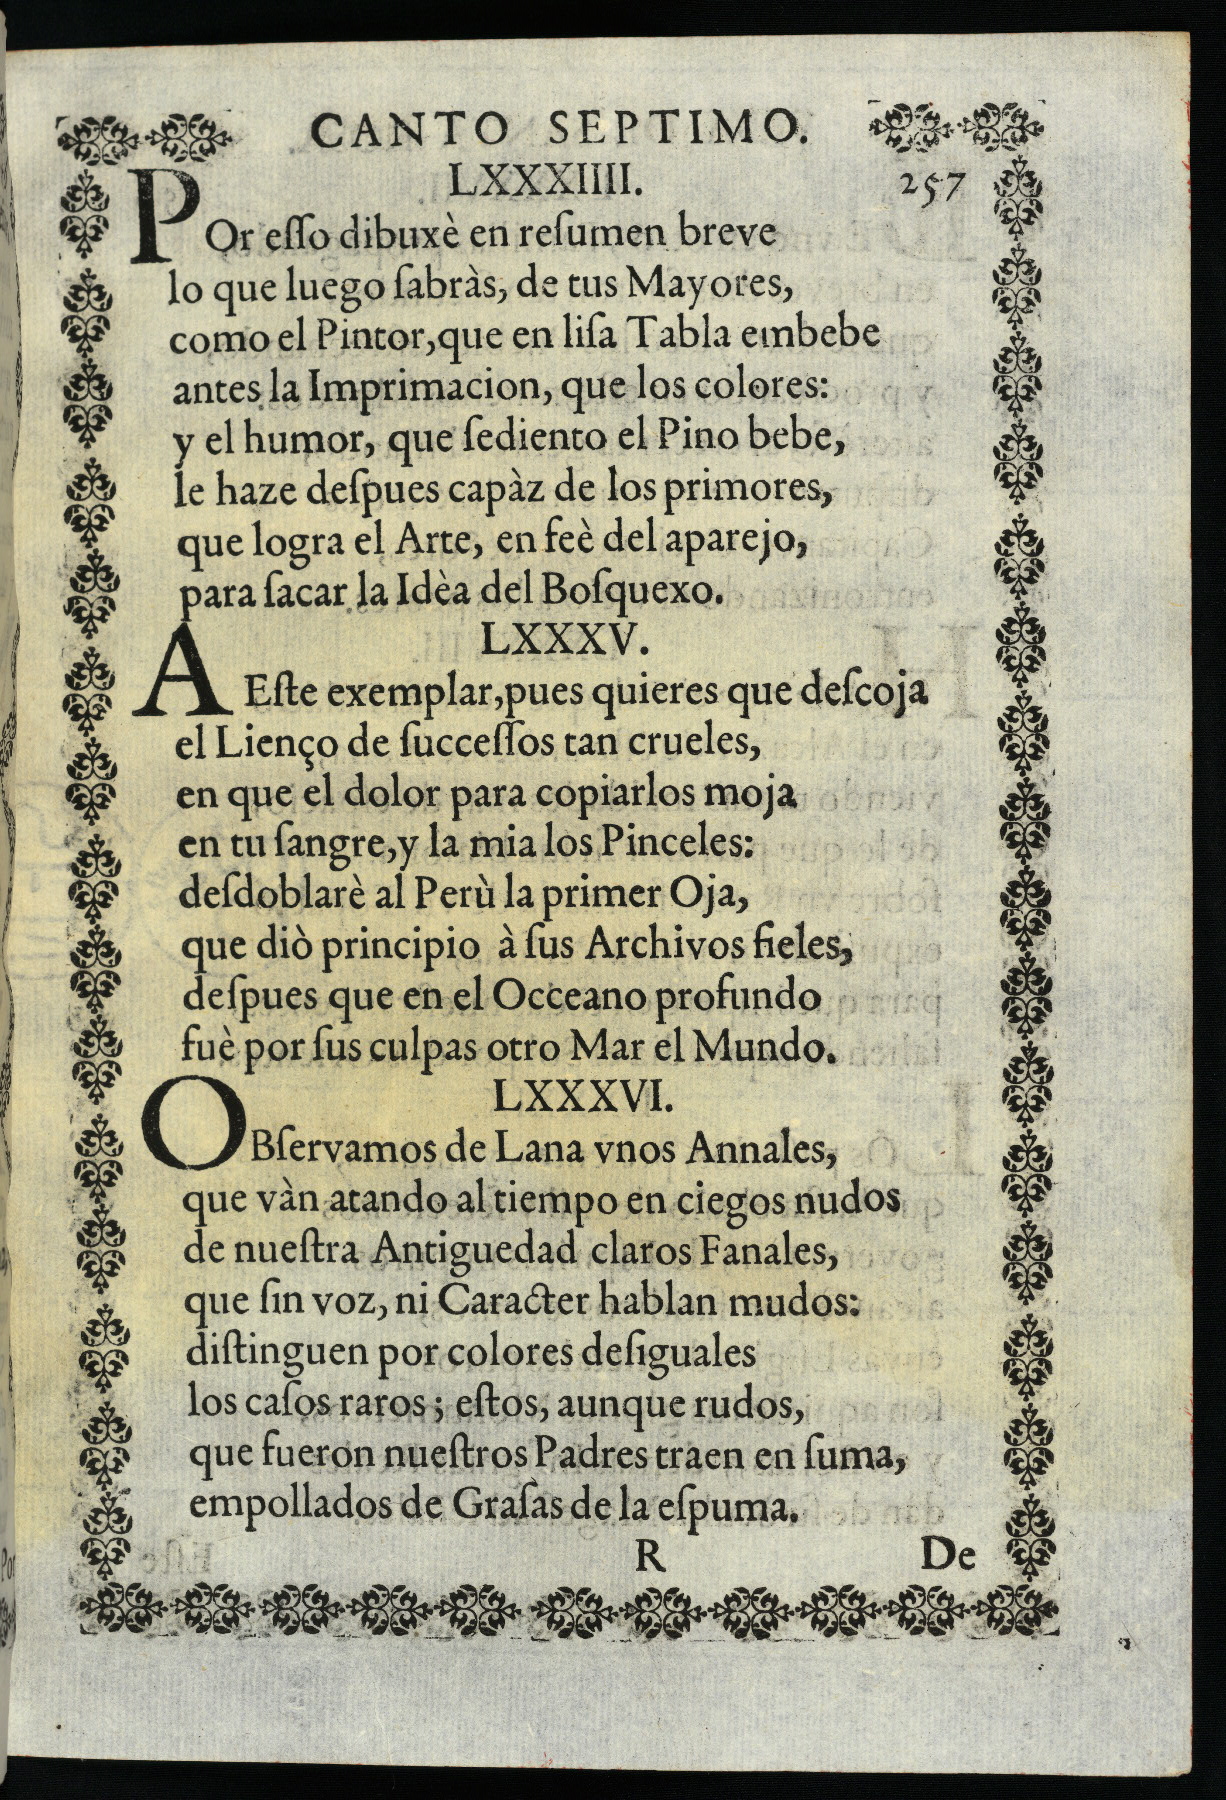 CANTO SEPTIMO.
LXXXIIII. 257
POr eſſo dibuxè en reſumen breve
lo que luego ſabràs, de tus Mayores,
como el Pintor, que en liſa Tabla embebe
antes la Imprimacion, que los colores:
y el humor, que ſediento el Pino bebe,
le haze deſpues capàz de los primores,
que logra el Arte, en feè del aparejo,
para ſacar la Idèa del Boſquexo.
LXXXV.
A Eſte exemplar, pues quieres que deſcoja
el Lienço de ſucceſſos tan crueles,
en que el dolor para copiarlos moja
en tu ſangre, y la mia los Pinceles:
deſdoblarè al Perù la primer Oja,
que diò principio à ſus Archivos fieles,
deſpues que en el Occeano profundo
fuè por ſus culpas otro Mar el Mundo.
LXXXVI.
OBſervamos de Lana vnos Annales,
que vàn atando al tiempo en ciegos nudos
de nueſtra Antiguedad claros Fanales,
que ſin voz, ni Caracter hablan mudos:
diſtinguen por colores deſiguales
los caſos raros; eſtos, aunque rudos,
que fueron nueſtros Padres traen en ſuma,
empollados de Graſas de la eſpuma.
R De